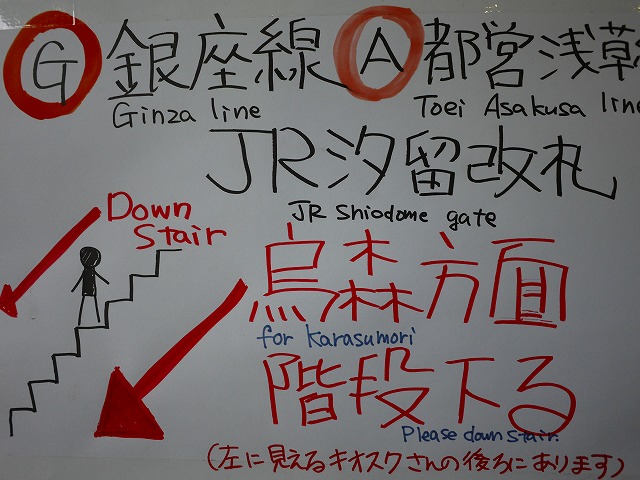 G 銀座線 A 都営浅草
Ginza line Toei Asakusa line
JR汐留改札
JR Shiodome gate
Down
Stair
烏森方面
for Karasumori
階段下る
Please down stair.
(左に見えるキオスクさんの後ろにあります)